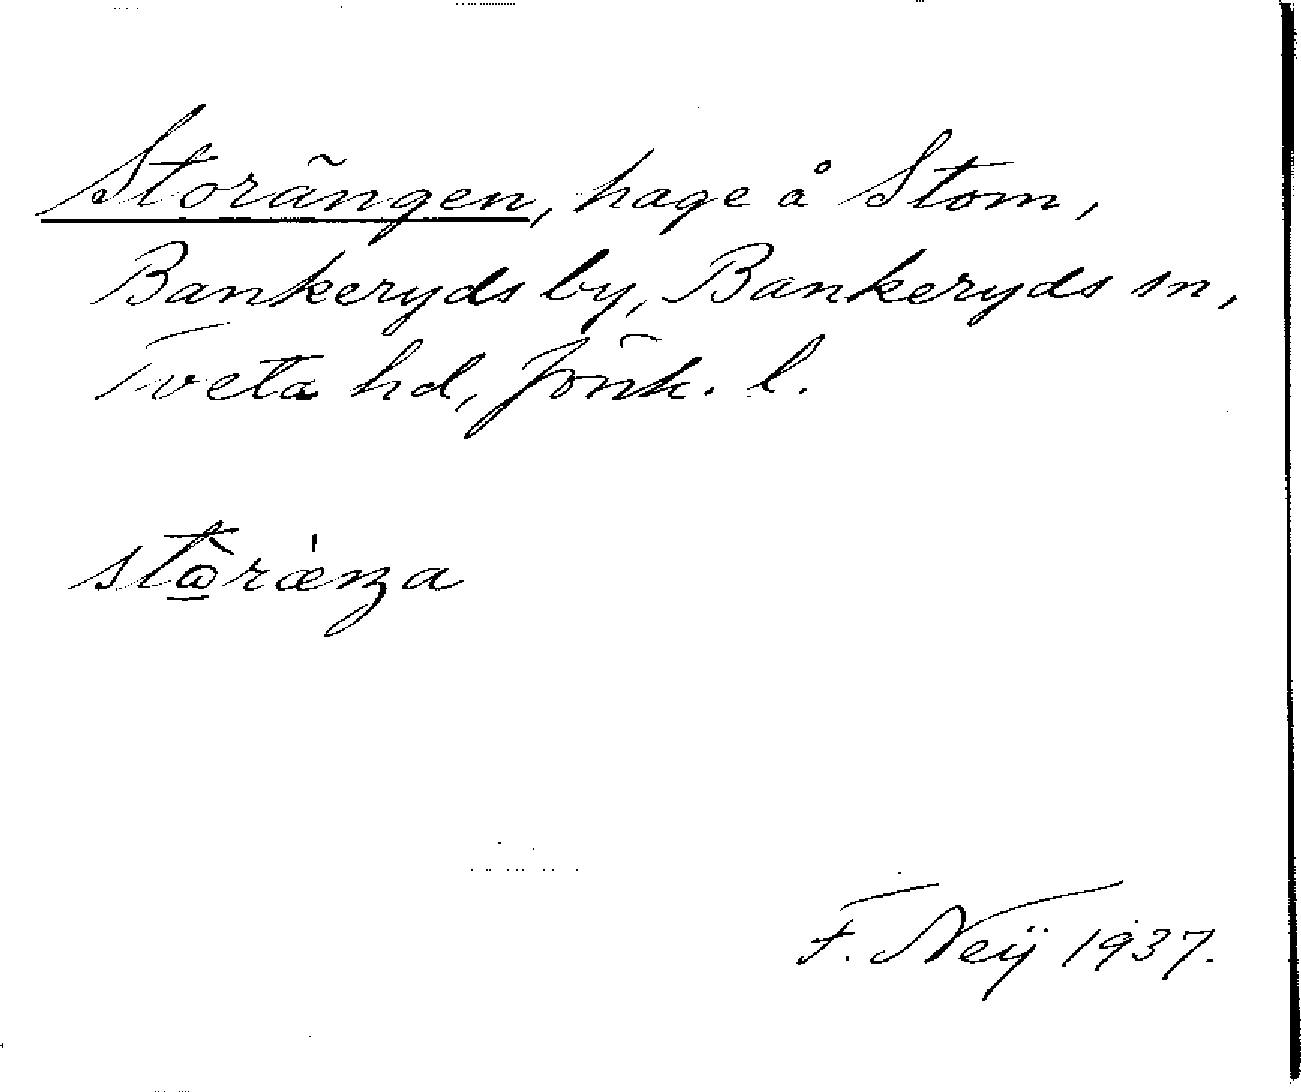 Storängen, hage å Stom,
Bankeryds by, Bankeryds sn,
Tveta hd, Jönk. l.
F. Neÿ 1937.